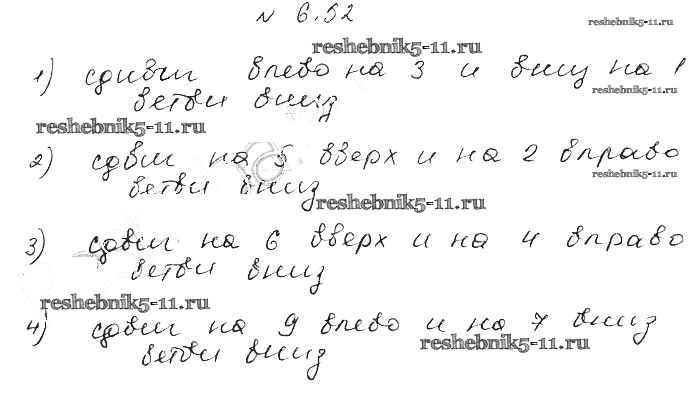 № 6.52
reshebnik5-11.ru
reshebnik5-11.ru
1) сдвиг влево на 3 и вниз на 1
reshebnik5-11.ru
ветви вниз
reshebnik5-11.ru
2) сдвиг на 5 вверх и на 2 вправо
reshebnik5-11.ru
ветви вниз
reshebnik5-11.ru
3) сдвиг на 6 вверх и на 4 вправо
ветви вниз
reshebnik5-11.ru
4) сдвиг на 9 влево и на 7 вниз
reshebnik5-11.ru
ветви вниз